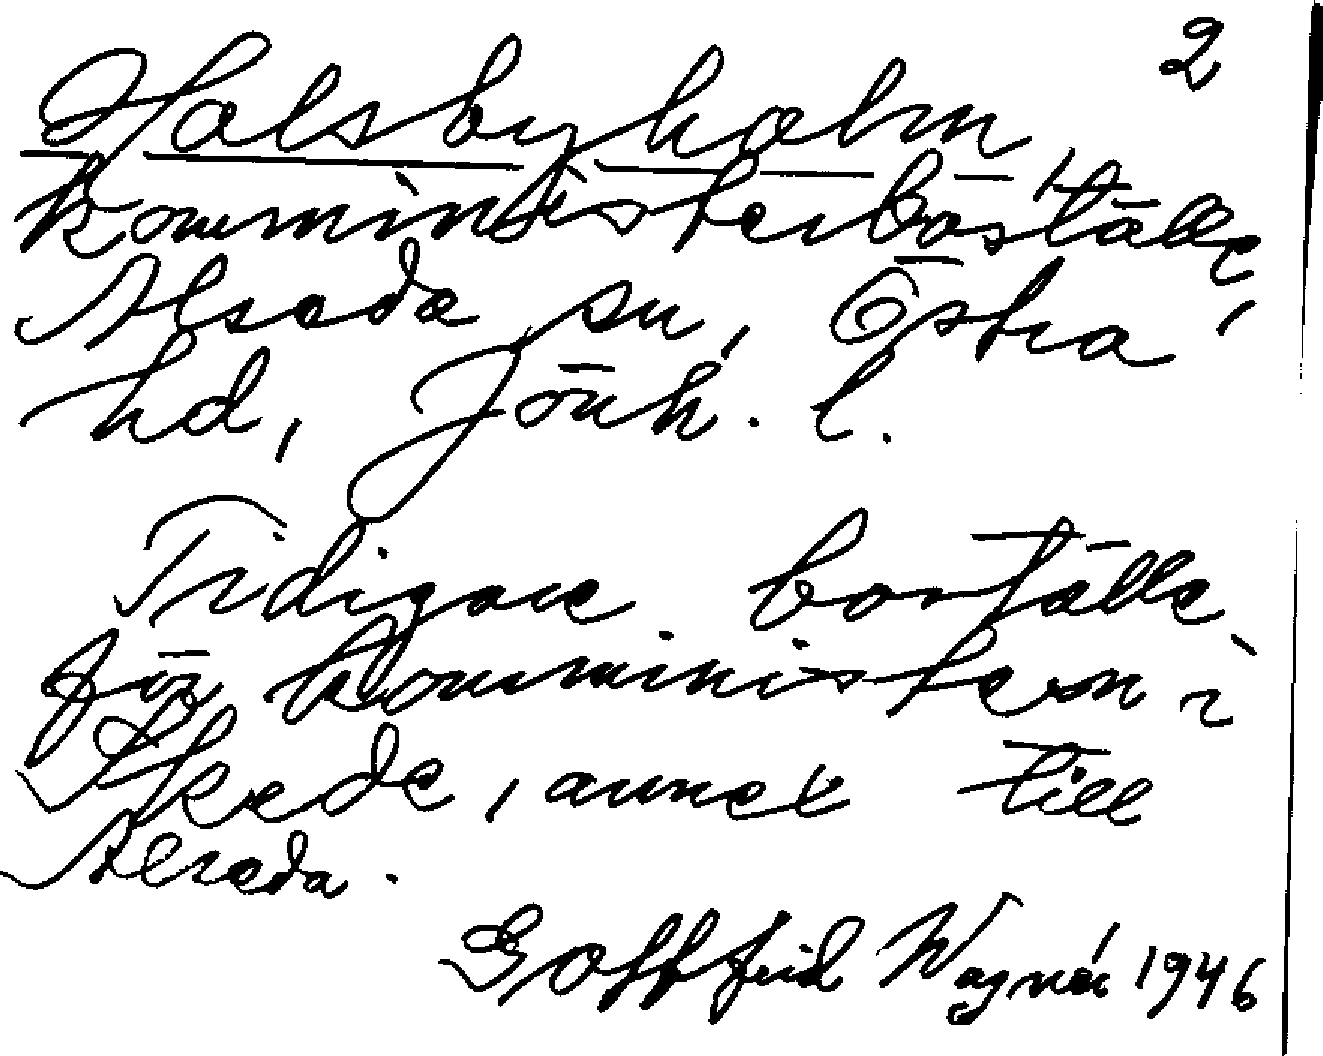 2
Holsbyholm,
komministerboställe,
Alseda sn, Östra
hd, Jönk. l.
Tidigare boställe
för komministern i
Skede, annex till
Alseda.
Gottfrid Wagnér 1946